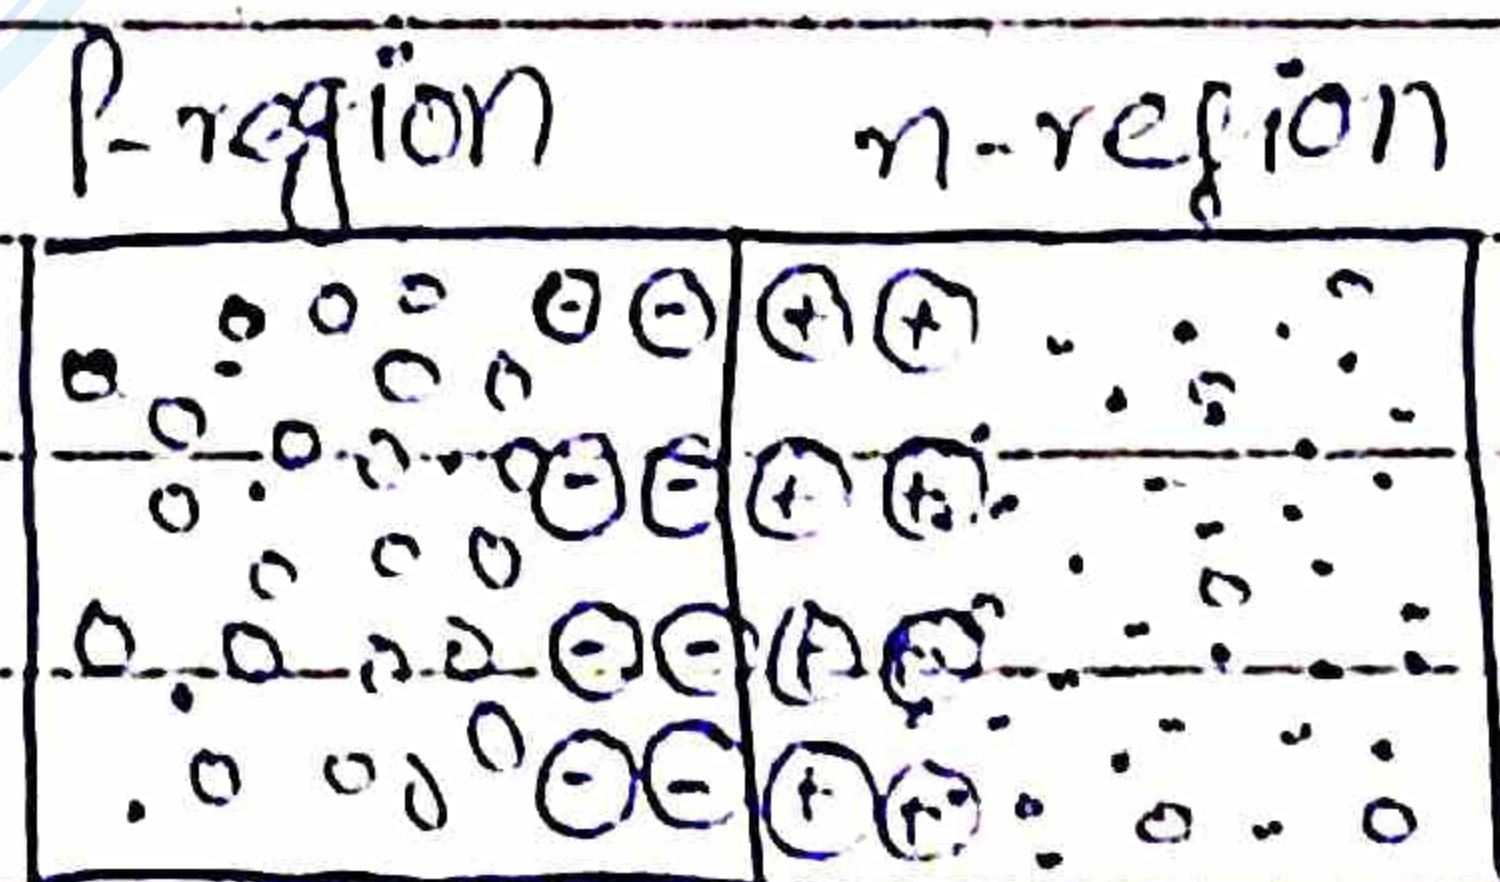 P-region n-region
- - + +
- - + +
- - + +
- - + +